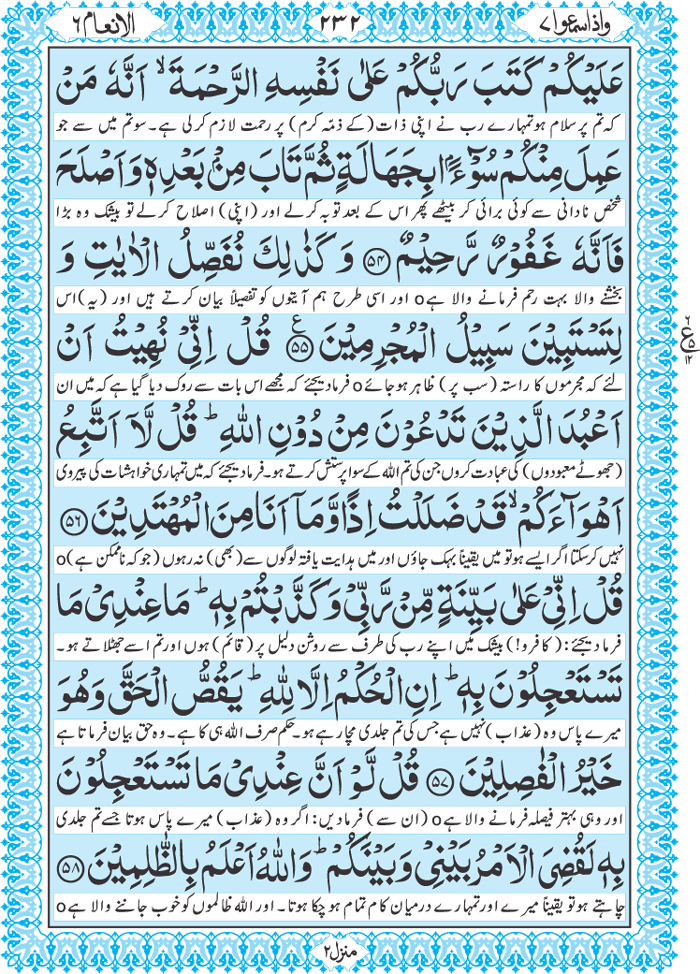 واذاسمعوا۷
۲۳۲
الانعام۶
عَلَيْكُمْ كَتَبَ رَبُّكُمْ عَلٰى نَفْسِهِ الرَّحْمَةَ ۙ اَنَّهٗ مَنْ
کہ تم پر سلام ہو تمہارے رب نے اپنی ذات (کے ذمّہ کرم) پر رحمت لازم کر لی ہے۔ سو تم میں سے جو
عَمِلَ مِنْكُمْ سُوْٓءًۢا بِجَهَالَةٍ ثُمَّ تَابَ مِنْۢ بَعْدِهٖ وَ اَصْلَحَ
شخص نادانی سے کوئی برائی کر بیٹھے پھر اس کے بعد توبہ کر لے اور (اپنی) اصلاح کر لے تو بیشک وہ بڑا
فَاَنَّهٗ غَفُوْرٌ رَّحِيْمٌ ﴿۵۴﴾ وَ كَذٰلِكَ نُفَصِّلُ الْاٰيٰتِ وَ
بخشنے والا بہت رحم فرمانے والا ہےo اور اسی طرح ہم آیتوں کو تفصیلاً بیان کرتے ہیں اور (یہ) اس
لِتَسْتَبِيْنَ سَبِيْلُ الْمُجْرِمِيْنَ ﴿۵۵﴾ ع قُلْ اِنِّيْ نُهِيْتُ اَنْ
۶ ع ۵ ۱۲
لئے کہ مجرموں کا راستہ (سب پر) ظاہر ہو جائےo فرما دیجئے کہ مجھے اس بات سے روک دیا گیا ہے کہ میں ان
اَعْبُدَ الَّذِيْنَ تَدْعُوْنَ مِنْ دُوْنِ اللّٰهِ ؕ قُلْ لَّاۤ اَتَّبِعُ
(جھوٹے معبودوں) کی عبادت کروں جن کی تم اللہ کے سوا پرستش کرتے ہو۔ فرما دیجئے کہ میں تمہاری خواہشات کی پیروی
اَهْوَآءَكُمْ ۙ قَدْ ضَلَلْتُ اِذًا وَّ مَاۤ اَنَا مِنَ الْمُهْتَدِيْنَ ﴿۵۶﴾
نہیں کر سکتا اگر ایسے ہو تو میں یقیناً بہک جاؤں اور میں ہدایت یافتہ لوگوں سے (بھی) نہ رہوں (جو کہ ناممکن ہے)o
قُلْ اِنِّيْ عَلٰى بَيِّنَةٍ مِّنْ رَّبِّيْ وَ كَذَّبْتُمْ بِهٖ ؕ مَا عِنْدِيْ مَا
فرما دیجئے: (کافرو!) بیشک میں اپنے رب کی طرف سے روشن دلیل پر (قائم) ہوں اور تم اسے جھٹلاتے ہو۔
تَسْتَعْجِلُوْنَ بِهٖ ؕ اِنِ الْحُكْمُ اِلَّا لِلّٰهِ ؕ يَقُصُّ الْحَقَّ وَهُوَ
میرے پاس وہ (عذاب) نہیں ہے جس کی تم جلدی مچا رہے ہو۔ حکم صرف اللہ ہی کا ہے۔ وہ حق بیان فرماتا ہے
خَيْرُ الْفٰصِلِيْنَ ﴿۵۷﴾ قُلْ لَّوْ اَنَّ عِنْدِيْ مَا تَسْتَعْجِلُوْنَ
اور وہی بہتر فیصلہ فرمانے والا ہےo (ان سے) فرما دیں: اگر وہ (عذاب) میرے پاس ہوتا جسے تم جلدی
بِهٖ لَقُضِيَ الْاَمْرُ بَيْنِيْ وَ بَيْنَكُمْ ؕ وَ اللّٰهُ اَعْلَمُ بِالظّٰلِمِيْنَ ﴿۵۸﴾
چاہتے ہو تو یقیناً میرے اور تمہارے درمیان کام تمام ہو چکا ہوتا۔ اور اللہ ظالموں کو خوب جاننے والا ہےo
منزل۲